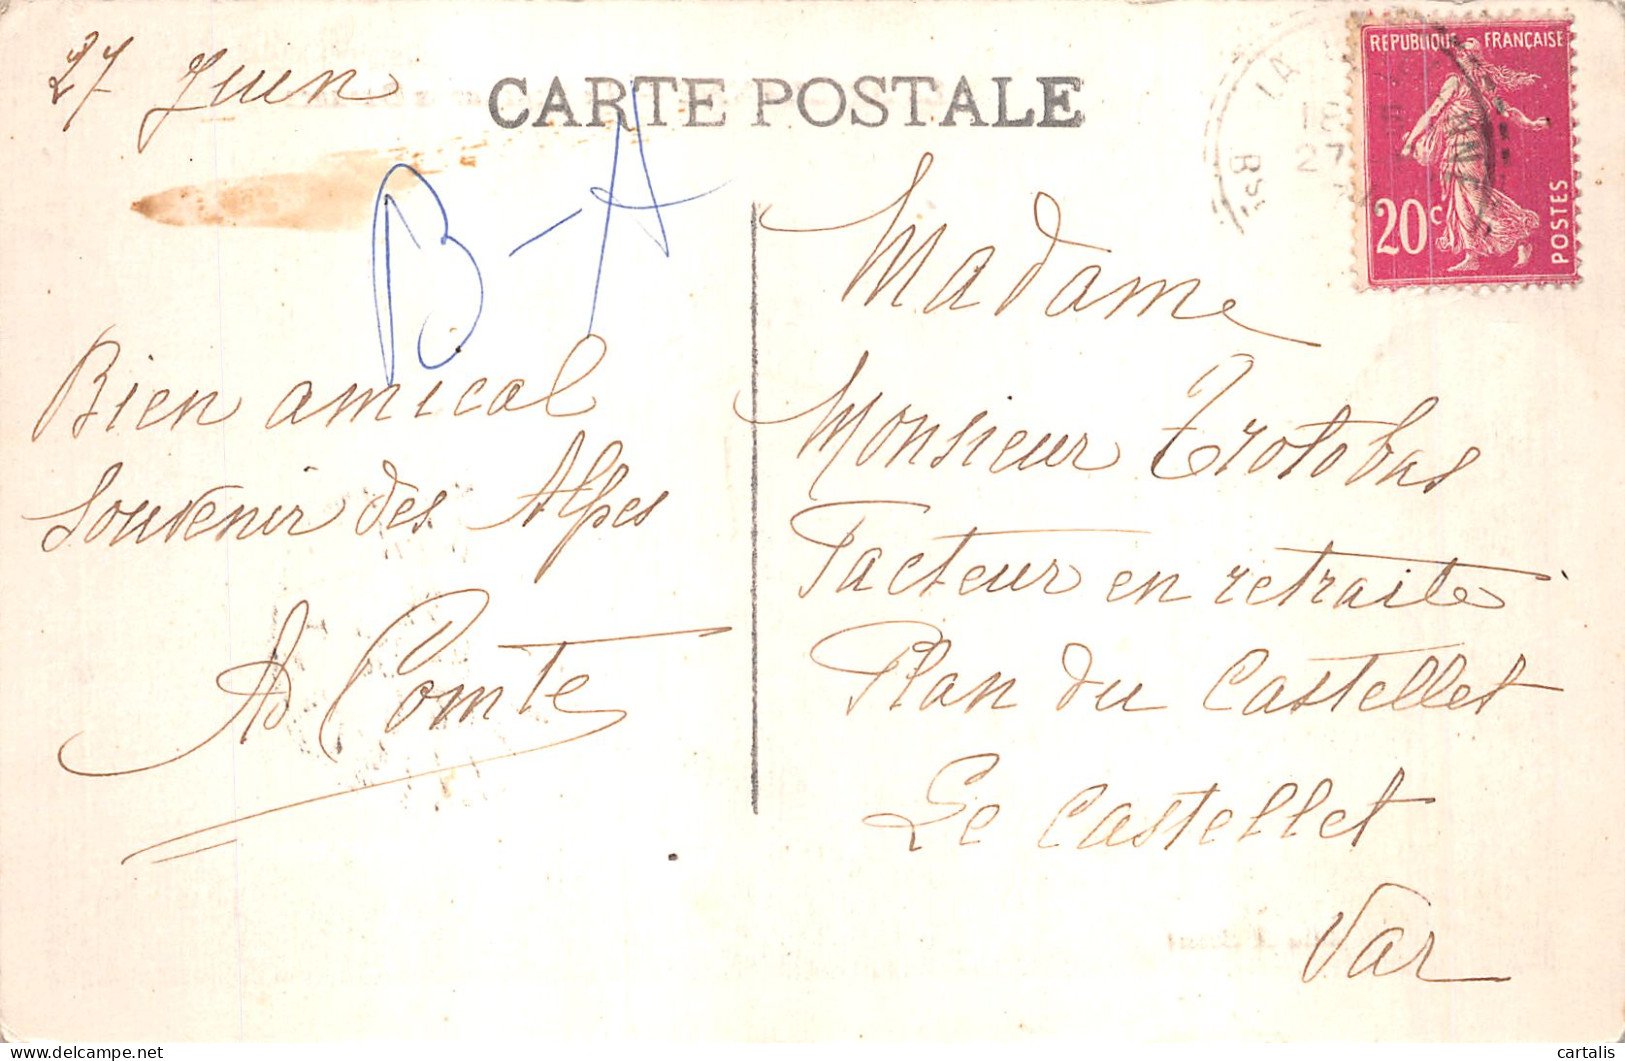 27 Juin
CARTE POSTALE
B-A
Bien amical
Souvenir des Alpes
Ad Comte
REPUBLIQUE FRANÇAISE
20c
POSTES
LA
18
27
Bses
Madame
Monsieur Trotobas
Facteur en retraite
Plan du Castellet
Le Castellet
Var
cartalis
delcampe.net